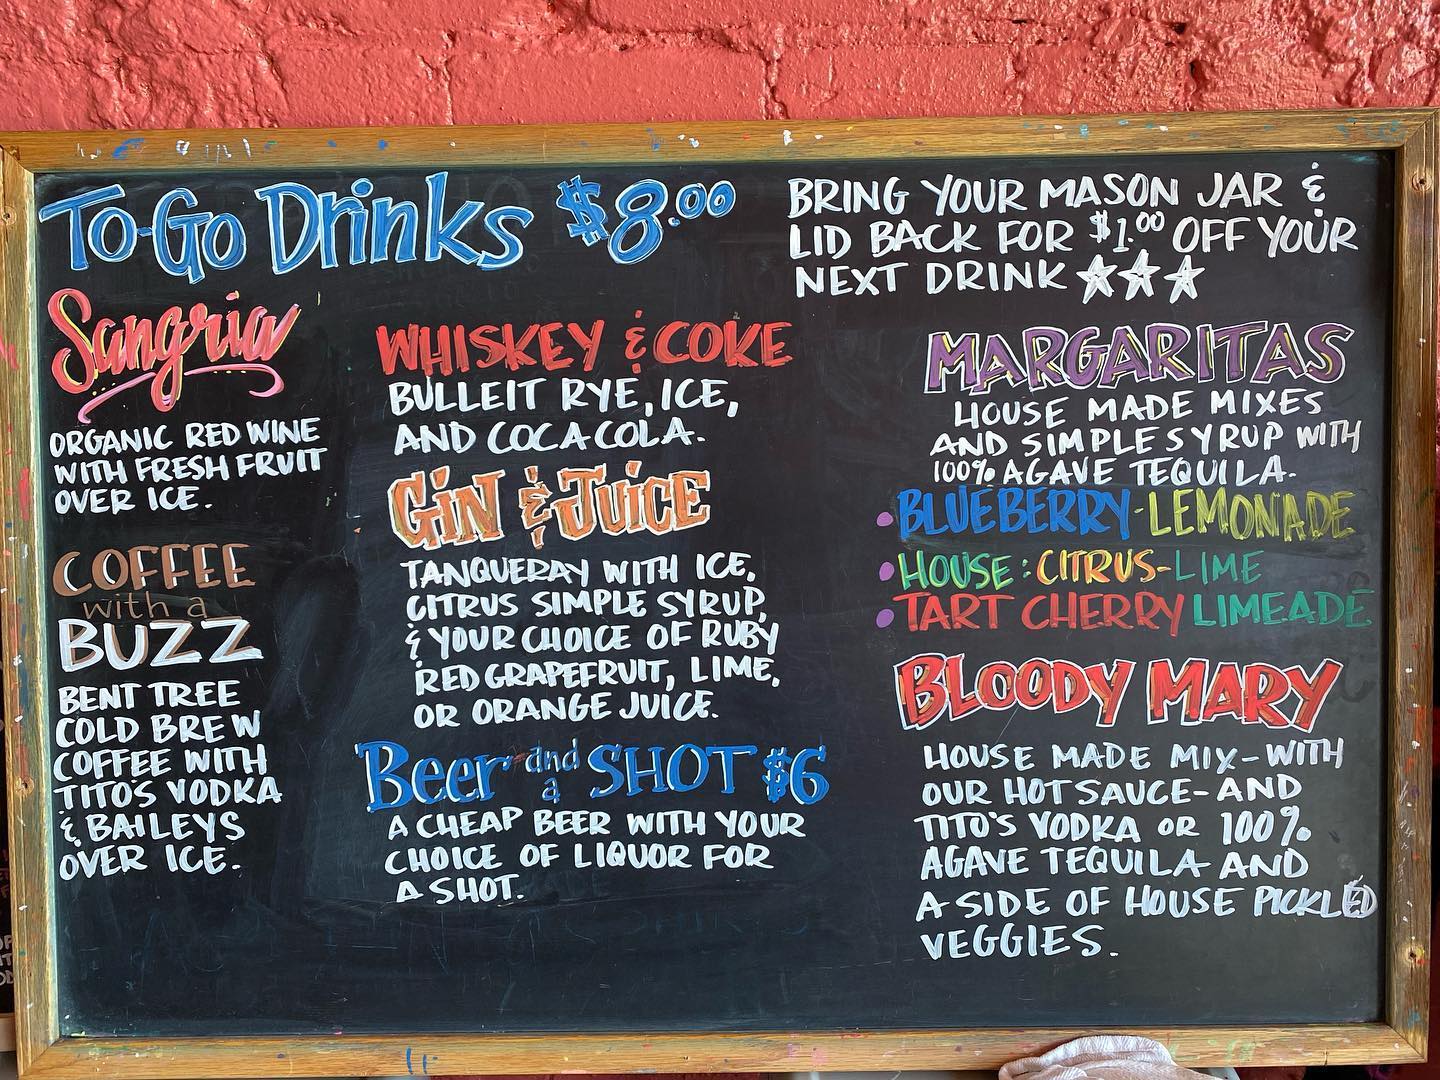 To-Go Drinks $8.00
BRING YOUR MASON JAR &
LID BACK FOR $1.00 OFF YOUR
NEXT DRINK ★★★
Sangria
ORGANIC RED WINE
WITH FRESH FRUIT
OVER ICE.
COFFEE
with a
BUZZ
BENT TREE
COLD BREW
COFFEE WITH
TITOS VODKA
& BAILEYS
OVER ICE.
WHISKEY & COKE
BULLEIT RYE, ICE,
AND COCA COLA.
GIN & JUICE
TANQUERAY WITH ICE,
CITRUS SIMPLE SYRUP,
& YOUR CHOICE OF RUBY
RED GRAPEFRUIT, LIME,
OR ORANGE JUICE.
Beer and a SHOT $6
A CHEAP BEER WITH YOUR
CHOICE OF LIQUOR FOR
A SHOT.
MARGARITAS
HOUSE MADE MIXES
AND SIMPLE SYRUP WITH
100% AGAVE TEQUILA.
• BLUEBERRY-LEMONADE
• HOUSE: CITRUS-LIME
• TART CHERRY LIMEADE
BLOODY MARY
HOUSE MADE MIX-WITH
OUR HOT SAUCE-AND
TITO'S VODKA OR 100%
AGAVE TEQUILA AND
A SIDE OF HOUSE PICKLED
VEGGIES.